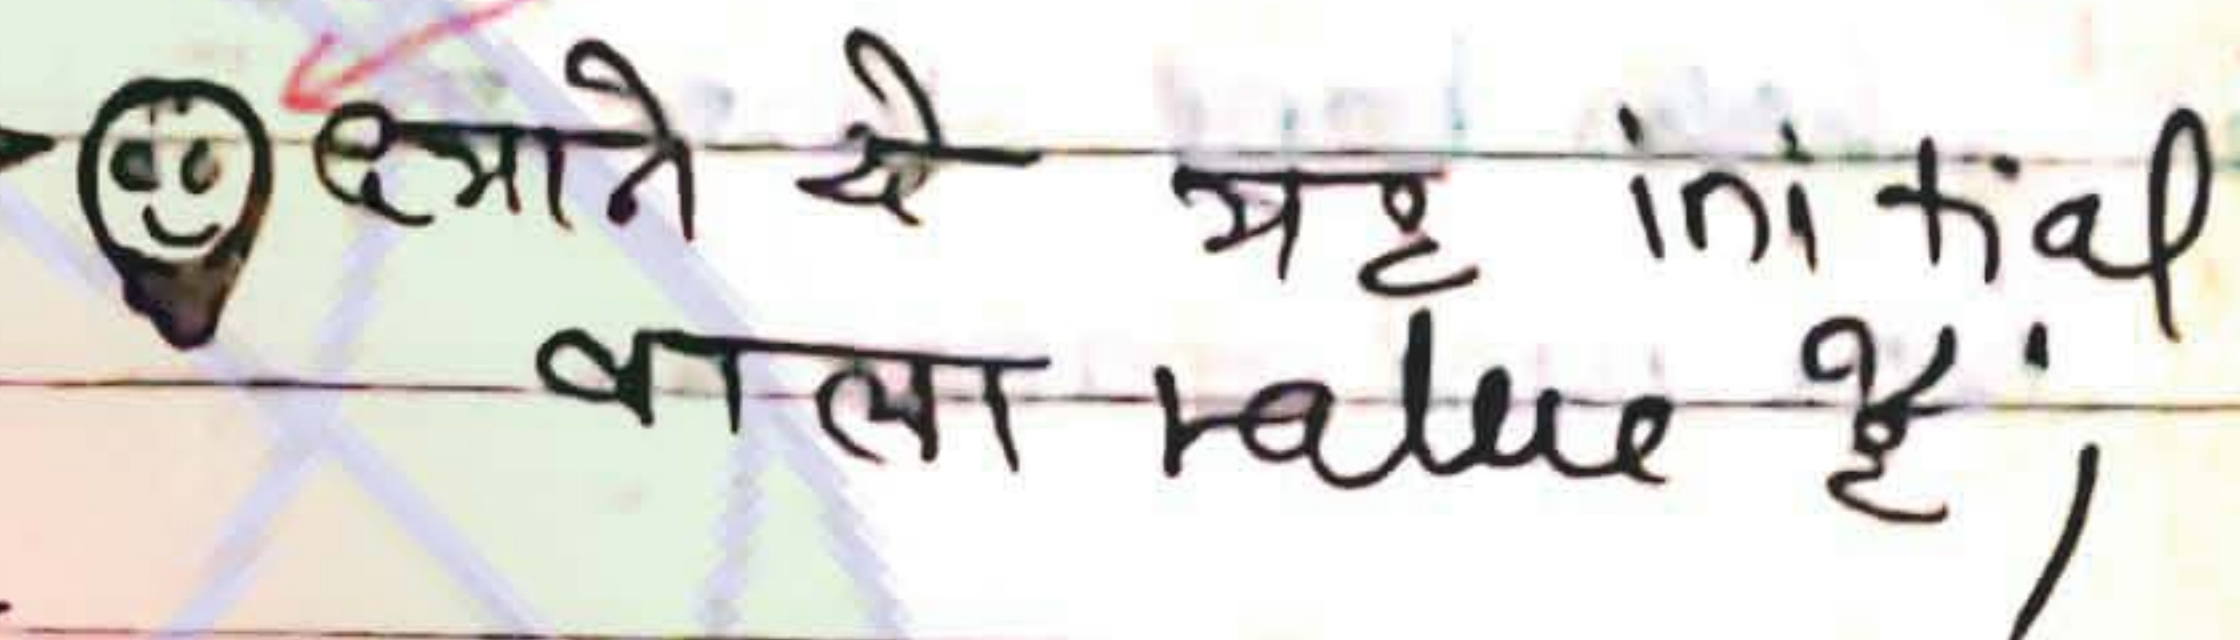 ध्याने दे यह initial
वाला value हैं,